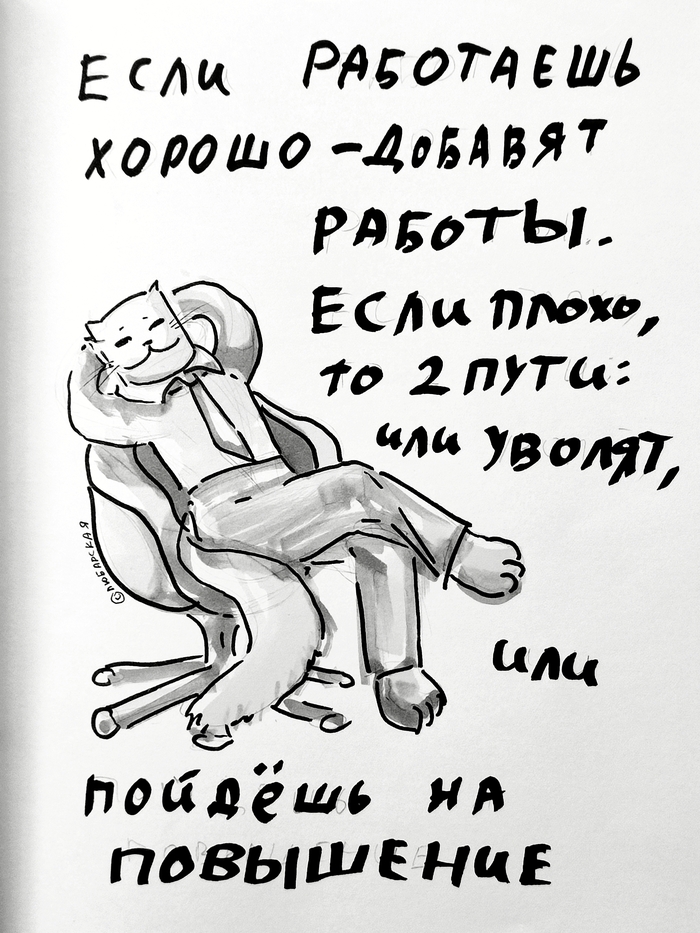 Если РАБОТАЕШЬ
ХОРОШО - ДОБАВЯТ
РАБОТЫ.
ЕСЛИ ПЛОХО,
ТО 2 ПУТИ:
ИЛИ УВОЛЯТ,
©ЛЮБАРСКАЯ
ИЛИ
ПОЙДЁШЬ НА
ПОВЫШЕНИЕ